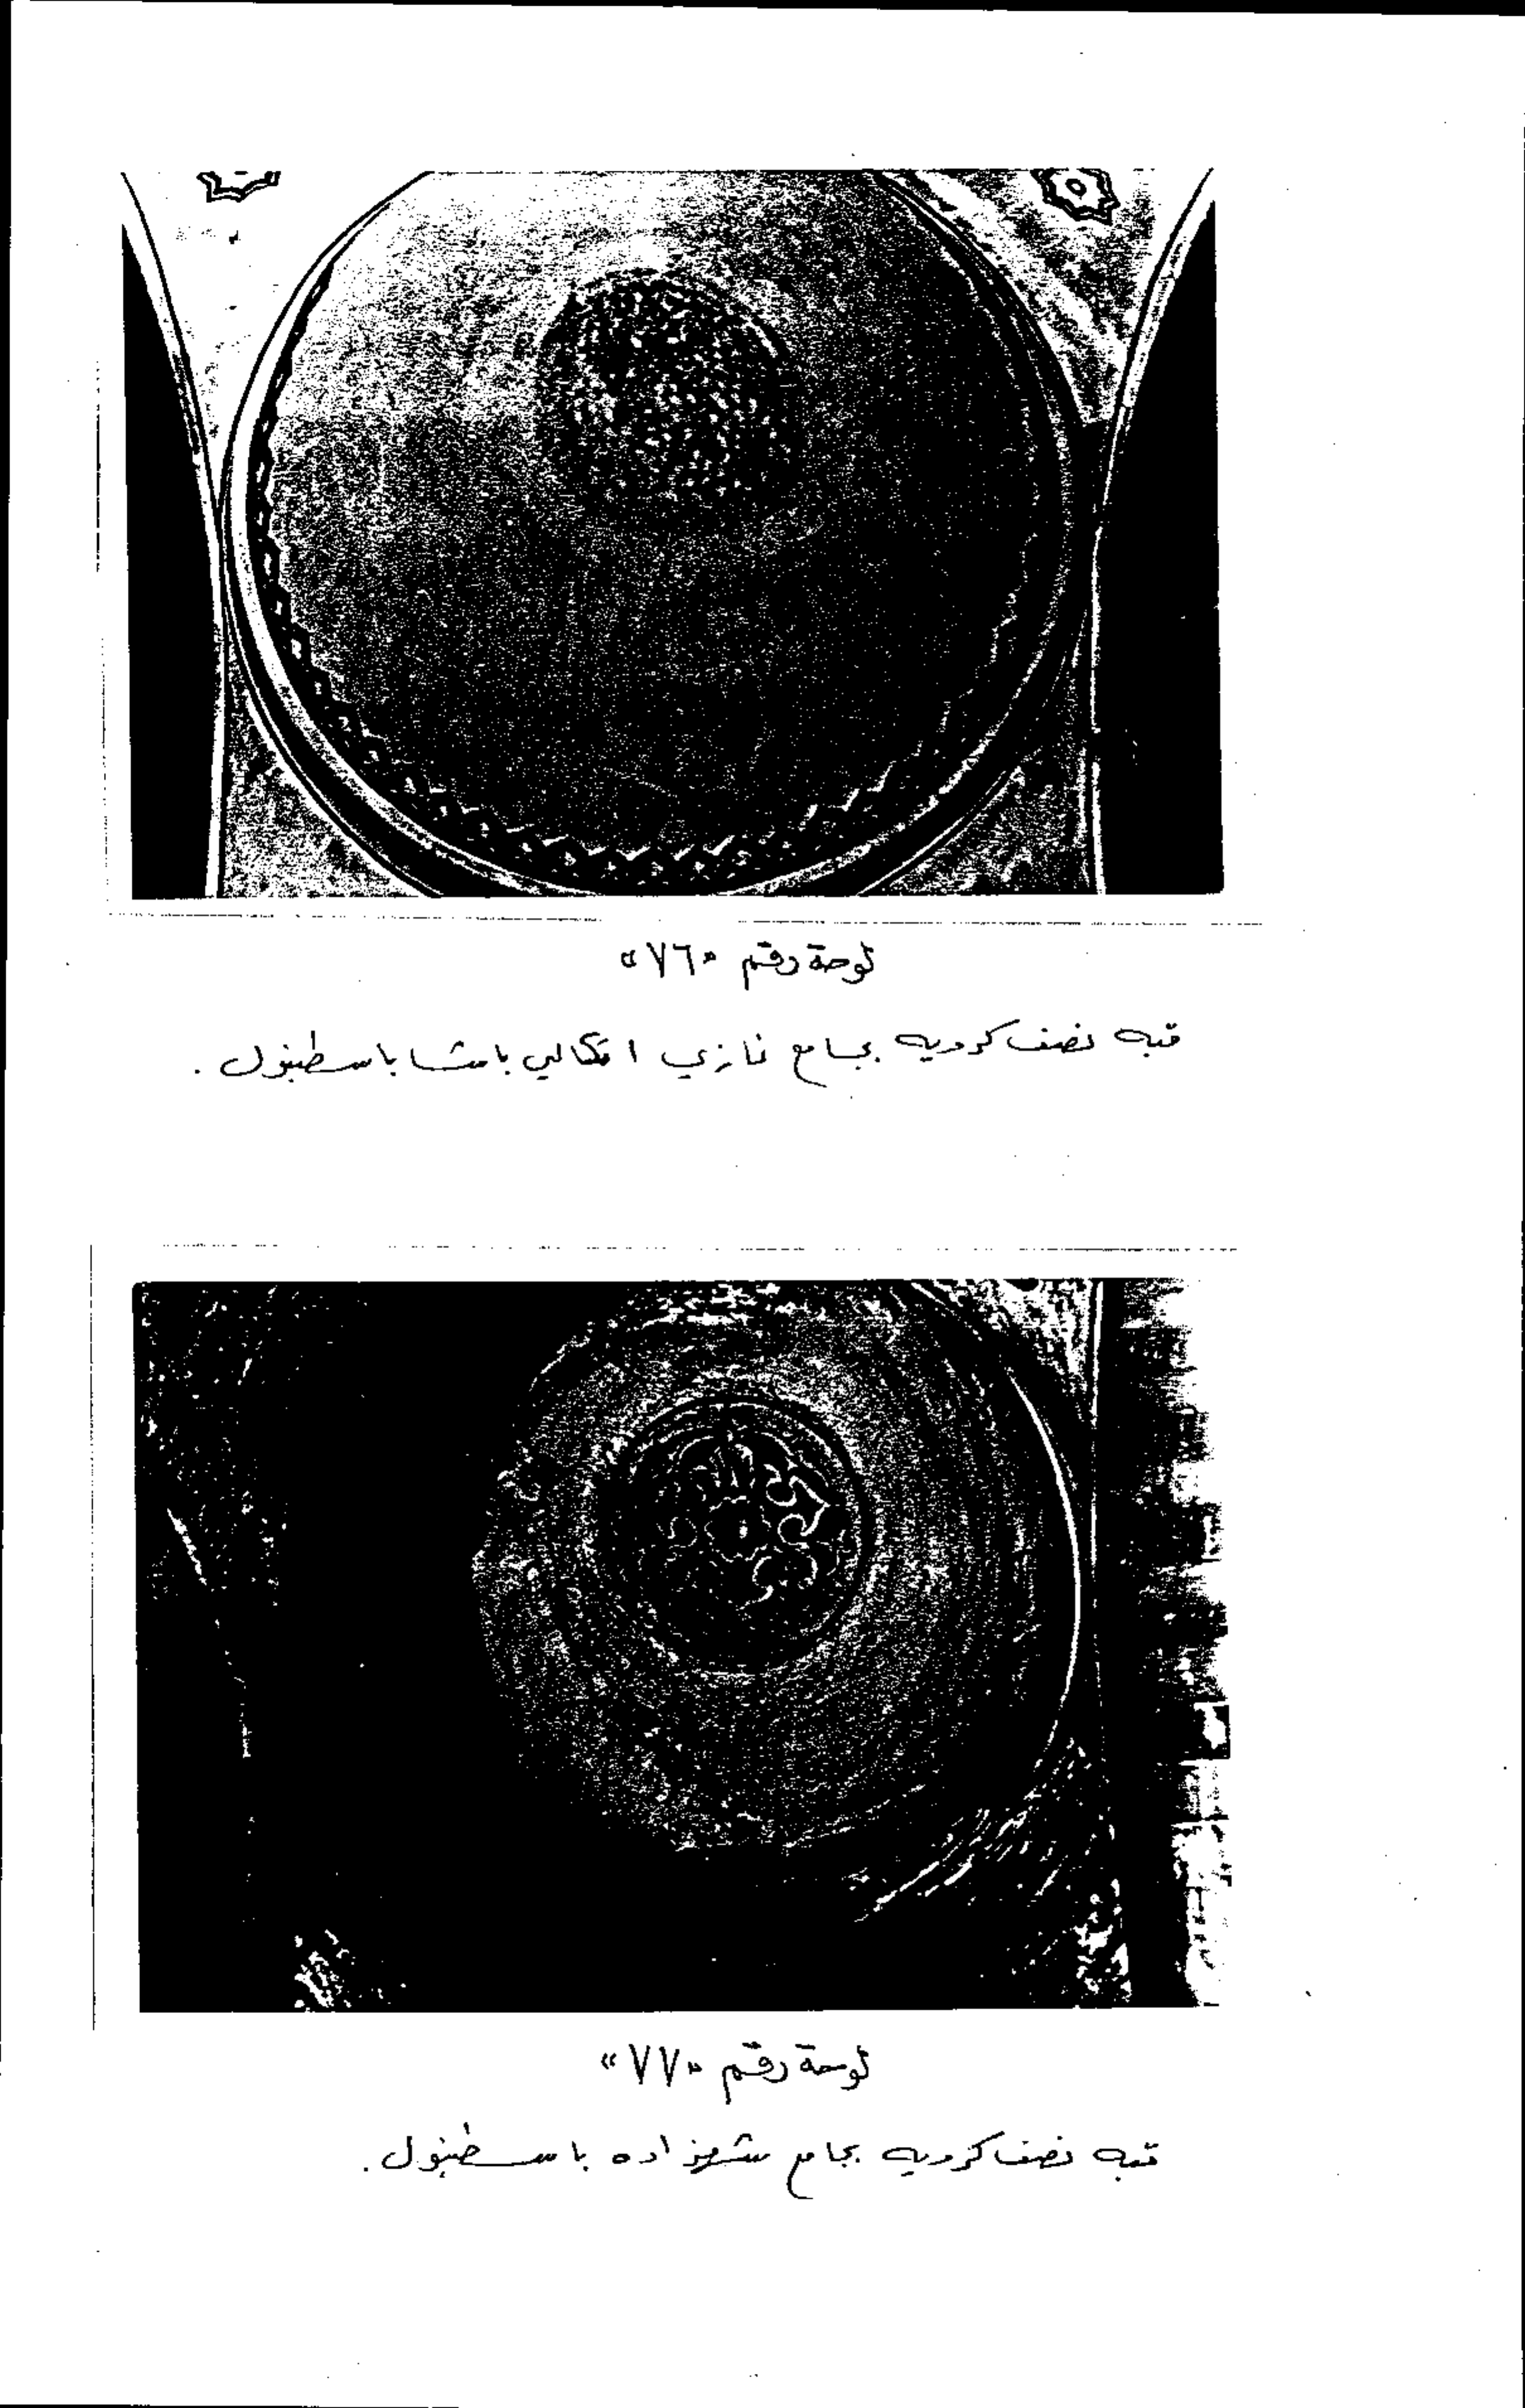 لوحة رقم «٧٦»
قبه نصف كرويه بجامع غازي اتكالي باشا باسطنبول .
لوحة رقم «٧٧»
قبه نصف كرويه بجامع شهزاده باسطنبول .